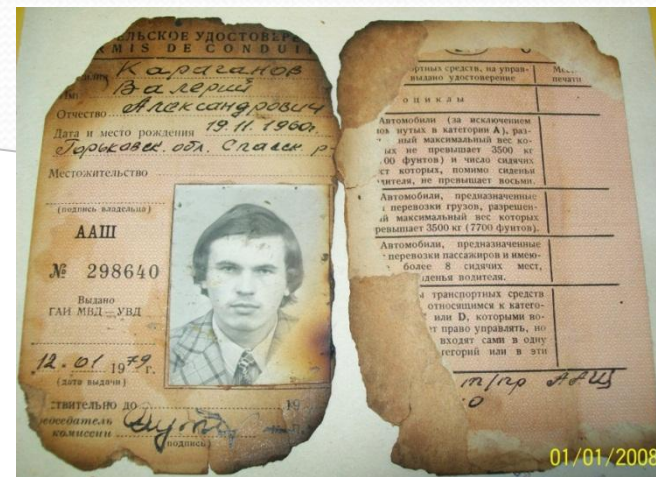 ЛЬСКОЕ УДОСТОВЕР
RMIS DE CONDUI
Караганов
Валерий
Отчество Александрович
Дата и место рождения 19.11.1960г.
Горьковск. обл. Спасск. р-
Местожительство
(подпись владельца)
ААШ
№ 298640
Выдано
ГАИ МВД—УВД
12.01 1979 г.
(дата выдачи)
твительно до 19
председатель
комиссии
(подпись)
ортных средств, на управ-
выдано удостоверение
печати
оциклы
Автомобили (за исключением
нутых в категории А), раз-
ный максимальный вес ко-
ых не превышает 3500 кг
00 фунтов) и число сидячих
ст которых, помимо сиденья
дителя, не превышает восьми.
Автомобили, предназначенные
перевозки грузов, разрешен-
й максимальный вес которых
ревышает 3500 кг (7700 фунтов).
Автомобили, предназначенные
перевозки пассажиров и имею-
более 8 сидячих мест,
иденья водителя.
транспортных средств
относящимся к катего-
или D, которыми во-
т право управлять, но
входят сами в одну
тегорий или в эти
т/пр ААЩ
01/01/2008